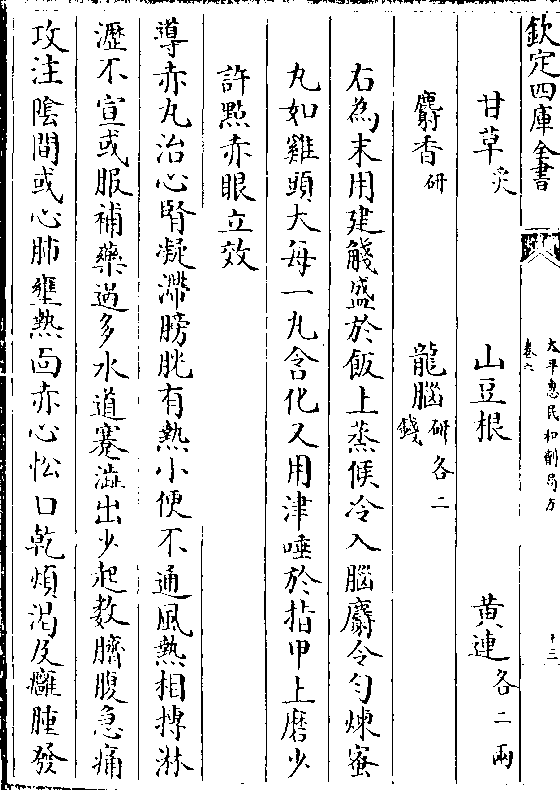 欽定四庫全書
太平惠民和劑局方
卷六
十三
甘草炙 山豆根 黄連各二兩
麝香研 龍腦研各二錢
右為末用建餞盛於飯上蒸候冷入腦麝令匀煉蜜
丸如雞頭大每一丸含化又用津唾於指甲上磨少
許點赤眼立效
導赤丸治心腎凝滯膀胱有熱小便不通風熱相摶淋
瀝不宣或服補藥過多水道蹇澁出少起數臍腹急痛
攻注隂間或心肺壅熱靣赤心忪口乾煩渇及癰腫發